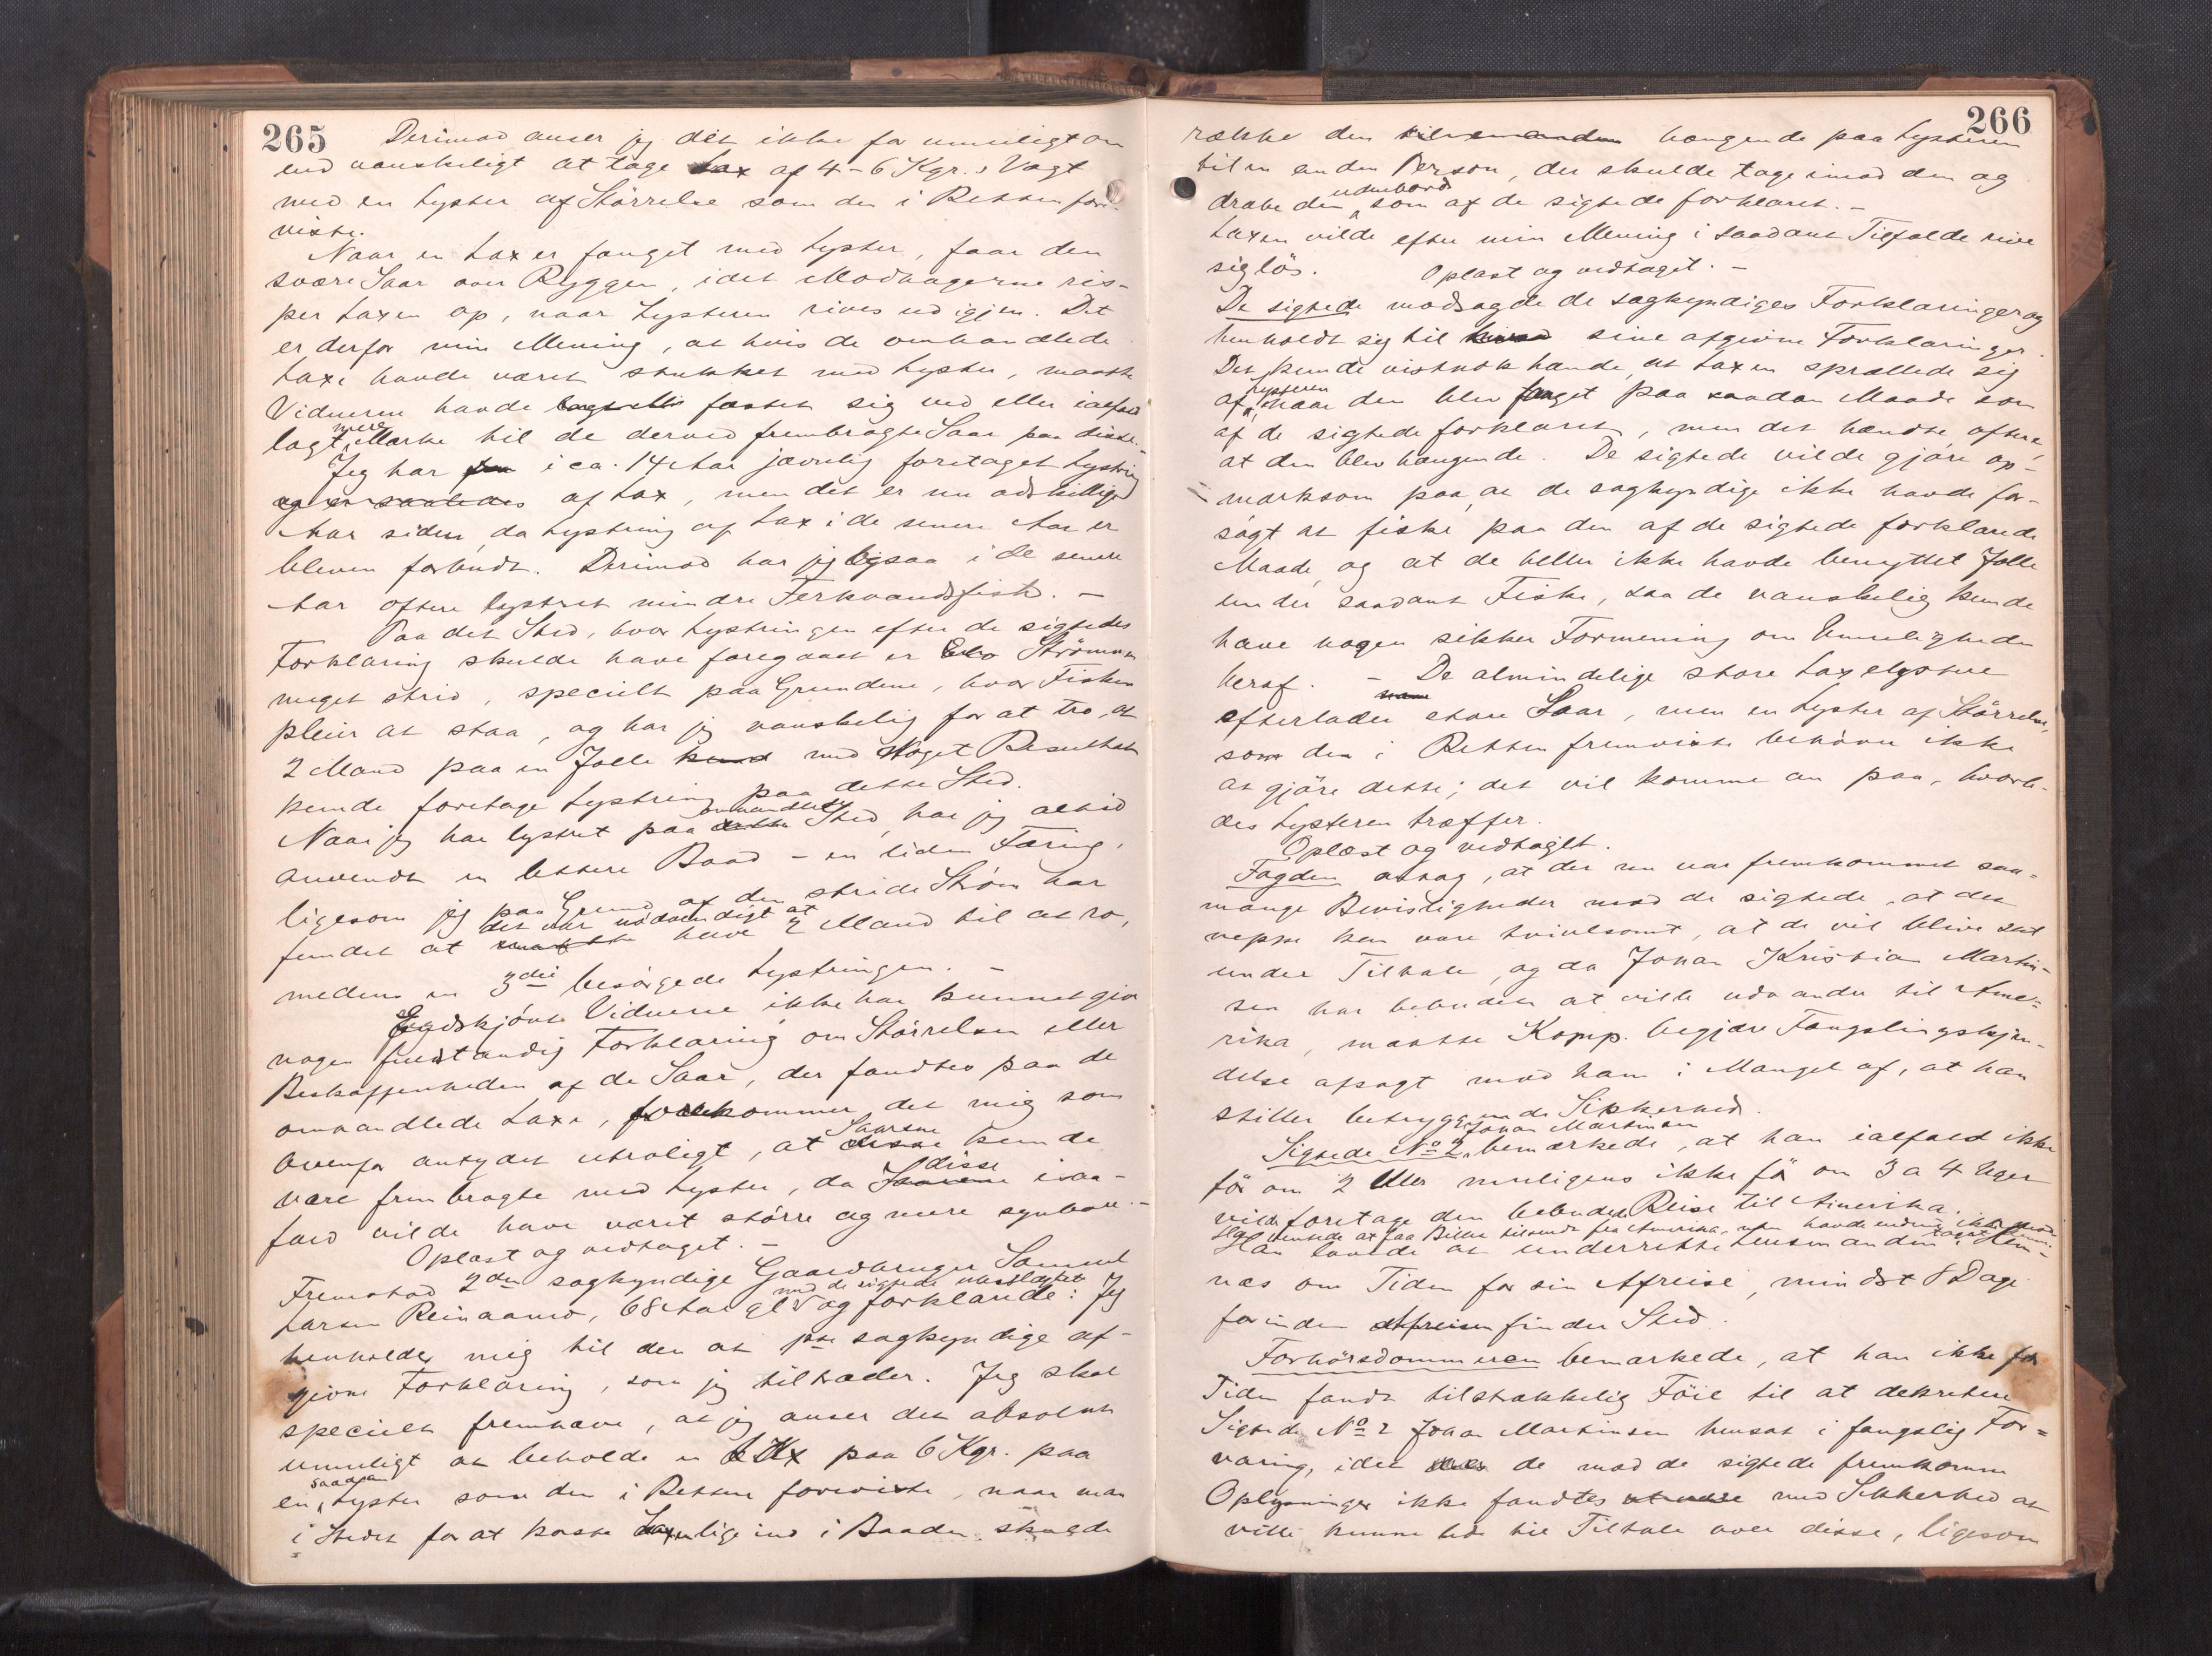 265
Derimod anser jeg det ikke for umuligt om
end vanskeligt at tage Lax af 4-6 Kgr.s Vægt
med en Lyster af Störrelse som den i Retten fore-
viste.
Naar en Lax er fanget med Lyster, faar den
svære Saar over Ryggen, idet Modhagerne ris-
per Laxen op, naar Lysteren rives ud igjen. Det
er derfor min Mening, at hvis de omhandlede
Laxe havde været stukket med Lyster, maatte
Vidnerne havde fæstet sig ved eller ialfald
lagt mere Mærke til de derved frembragte Saar paa disse.
Jeg har i ca. 14 Aar jævnlig foretaget Lystring
og er saaledes af Lax, men det er nu adskillige
Aar siden, da Lystring af Lax i de senere Aar er
bleven forbudt. Derimod har jeg ogsaa i de senere
Aar oftere lystret mindre Ferkvandsfisk. -
Paa det Sted, hvor Lystringen efter de sigtedes
Forklaring skulde have foregaaet er Strömmen
meget strid, specielt paa Grundene, hvor Fisken
pleier at staa, og har jeg vanskelig for at tro, at
2 Mand paa en Jolle med Noget Resultat
kunde foretage Lystring paa dette Sted.
Naar jeg har lystret paa omhandlede Sted, har jeg altid
anvendt en lettere Baad - en liden Færing,
ligesom jeg paa Grund af den stride Ström har
fundet at det var nödvendigt at have 2 Mand til at ro,
medens en 3die besörgede Lystringen. -
Endskjönt Vidnerne ikke har kunnet give
nogen fuldstændig Forklaring om Störrelsen eller
Beskaffenheden af de Saar, der fandtes paa de
omhandlede Laxe, forekommer det mig som
ovenfor antydet utroligt, at Saarene kunde
være frembragte med Lyster, da disse isaa-
fald vilde have været större og mere synbare. -
Oplæst og vedtaget. -
Fremstod 2den sagkyndige Gaardbruger Samuel
Larsen Reinaamo, 68 Aar gl. med de sigtede ubeslægtet og forklarede: Jeg
henholder mig til den af 1ste sagkyndige af-
givne Forklaring, som jeg tiltræder. Jeg skal
specielt fremhæve, at jeg anser det absolut
umuligt at beholde en Lax paa 6 Kgr. paa
en saadan Lyster som den i Retten foreviste, naar man
i Stedet for at kaste Laxen lige ind i Baaden skulde
266
række den hængende paa Lysteren
til en anden Person, der skulde tage imod den og
dræbe den udenbords som af de sigtede forklaret. -
Laxen vilde efter min Mening i saadant Tilfælde rive
sig lös. Oplæst og vedtaget. -
De sigtede modsagde de sagkyndiges Forklaringer og
henholdt sig til sine afgivne Forklaringer.
Det kunde vistnok hænde, at Laxen sprællede sig
af Lysteren naar den blev fanget paa saadan Maade som
af de sigtede forklaret, men det hændte oftere,
at den blev hængende. De sigtede vilde gjöre op-
mærksom paa, at de sagkyndige ikke havde for-
sögt at fiske paa den af de sigtede forklarede
Maade, og at de heller ikke havde benyttet Jolle
under saadant Fiske, saa de vanskelig kunde
have nogen sikker Formening om Umuligheden
heraf. - De almindelige store Laxelystre
efterlader store Saar, men en Lyster af Störrelse,
som den i Retten fremviste behöver ikke
at gjöre dette; det vil komme an paa, hvorle-
des Lysteren træffer.
Oplæst og vedtaget.
Fogden antog, at der nu var fremkommet saa-
mange Bevisligheder mod de sigtede, at det
neppe kan være tvivlsomt, at de vil blive sat
under Tiltale, og da Johan Kristian Martin-
sen har bebudet at ville udvandre til Ame-
rika, maatte Komp. begjære Fængslingskjen-
delse afsagt mod ham i Mangel af, at han
stiller betryggende Sikkerhed.
Sigtede No 2 Johan Martinsen bemærkede, at han ialfald ikke
för om 2 eller muligens ikke för om 3 a 4 Uger
vilde foretage den bebudede Reise til Amerika.
Han ventede at faa Billet tilsendt fra Amerika, men havde endnu ikke
Han lovede at underrette Lensmanden i Hem-
nes om Tiden for sin Afreise, mindst 8 Dage
forinden Afreisen finder Sted.
Forhörsdommeren bemærkede, at han ikke for
Tiden fandt tilstrækkelig Föie til at dekretere
Sigtede No 2 Johan Martinsen hensat i fængslig For=
varing, idet de mod de sigtede fremkomne
Oplysninger ikke fandtes med Sikkerhed at
ville kunne lede til Tiltale over disse, ligesom